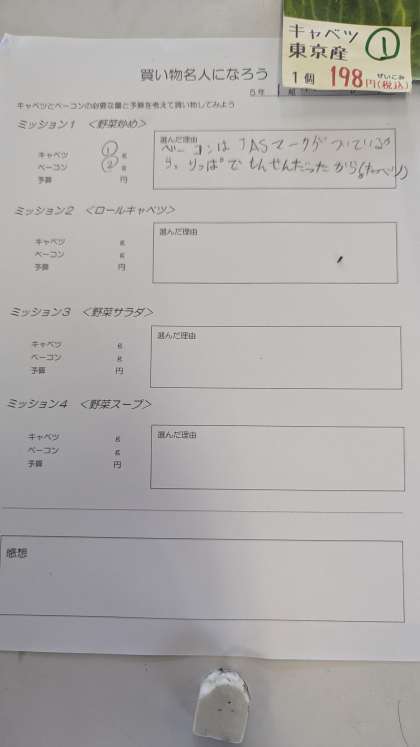 キャベツ ①
東京産
1個 198円(税込)
ぜいこみ
買い物名人になろう
5年 組
キャベツとベーコンの必要な量と予算を考えて買い物してみよう
ミッション1 <野菜炒め>
キャベツ ① g
ベーコン ② g
予算 円
選んだ理由
ベーコンはJASマークがついているか
ら。りっぱで
だったから(キャベツ)
ミッション2 <ロールキャベツ>
キャベツ g
ベーコン g
予算 円
選んだ理由
ミッション3 <野菜サラダ>
キャベツ g
ベーコン g
予算 円
選んだ理由
ミッション4 <野菜スープ>
キャベツ g
ベーコン g
予算 円
選んだ理由
感想